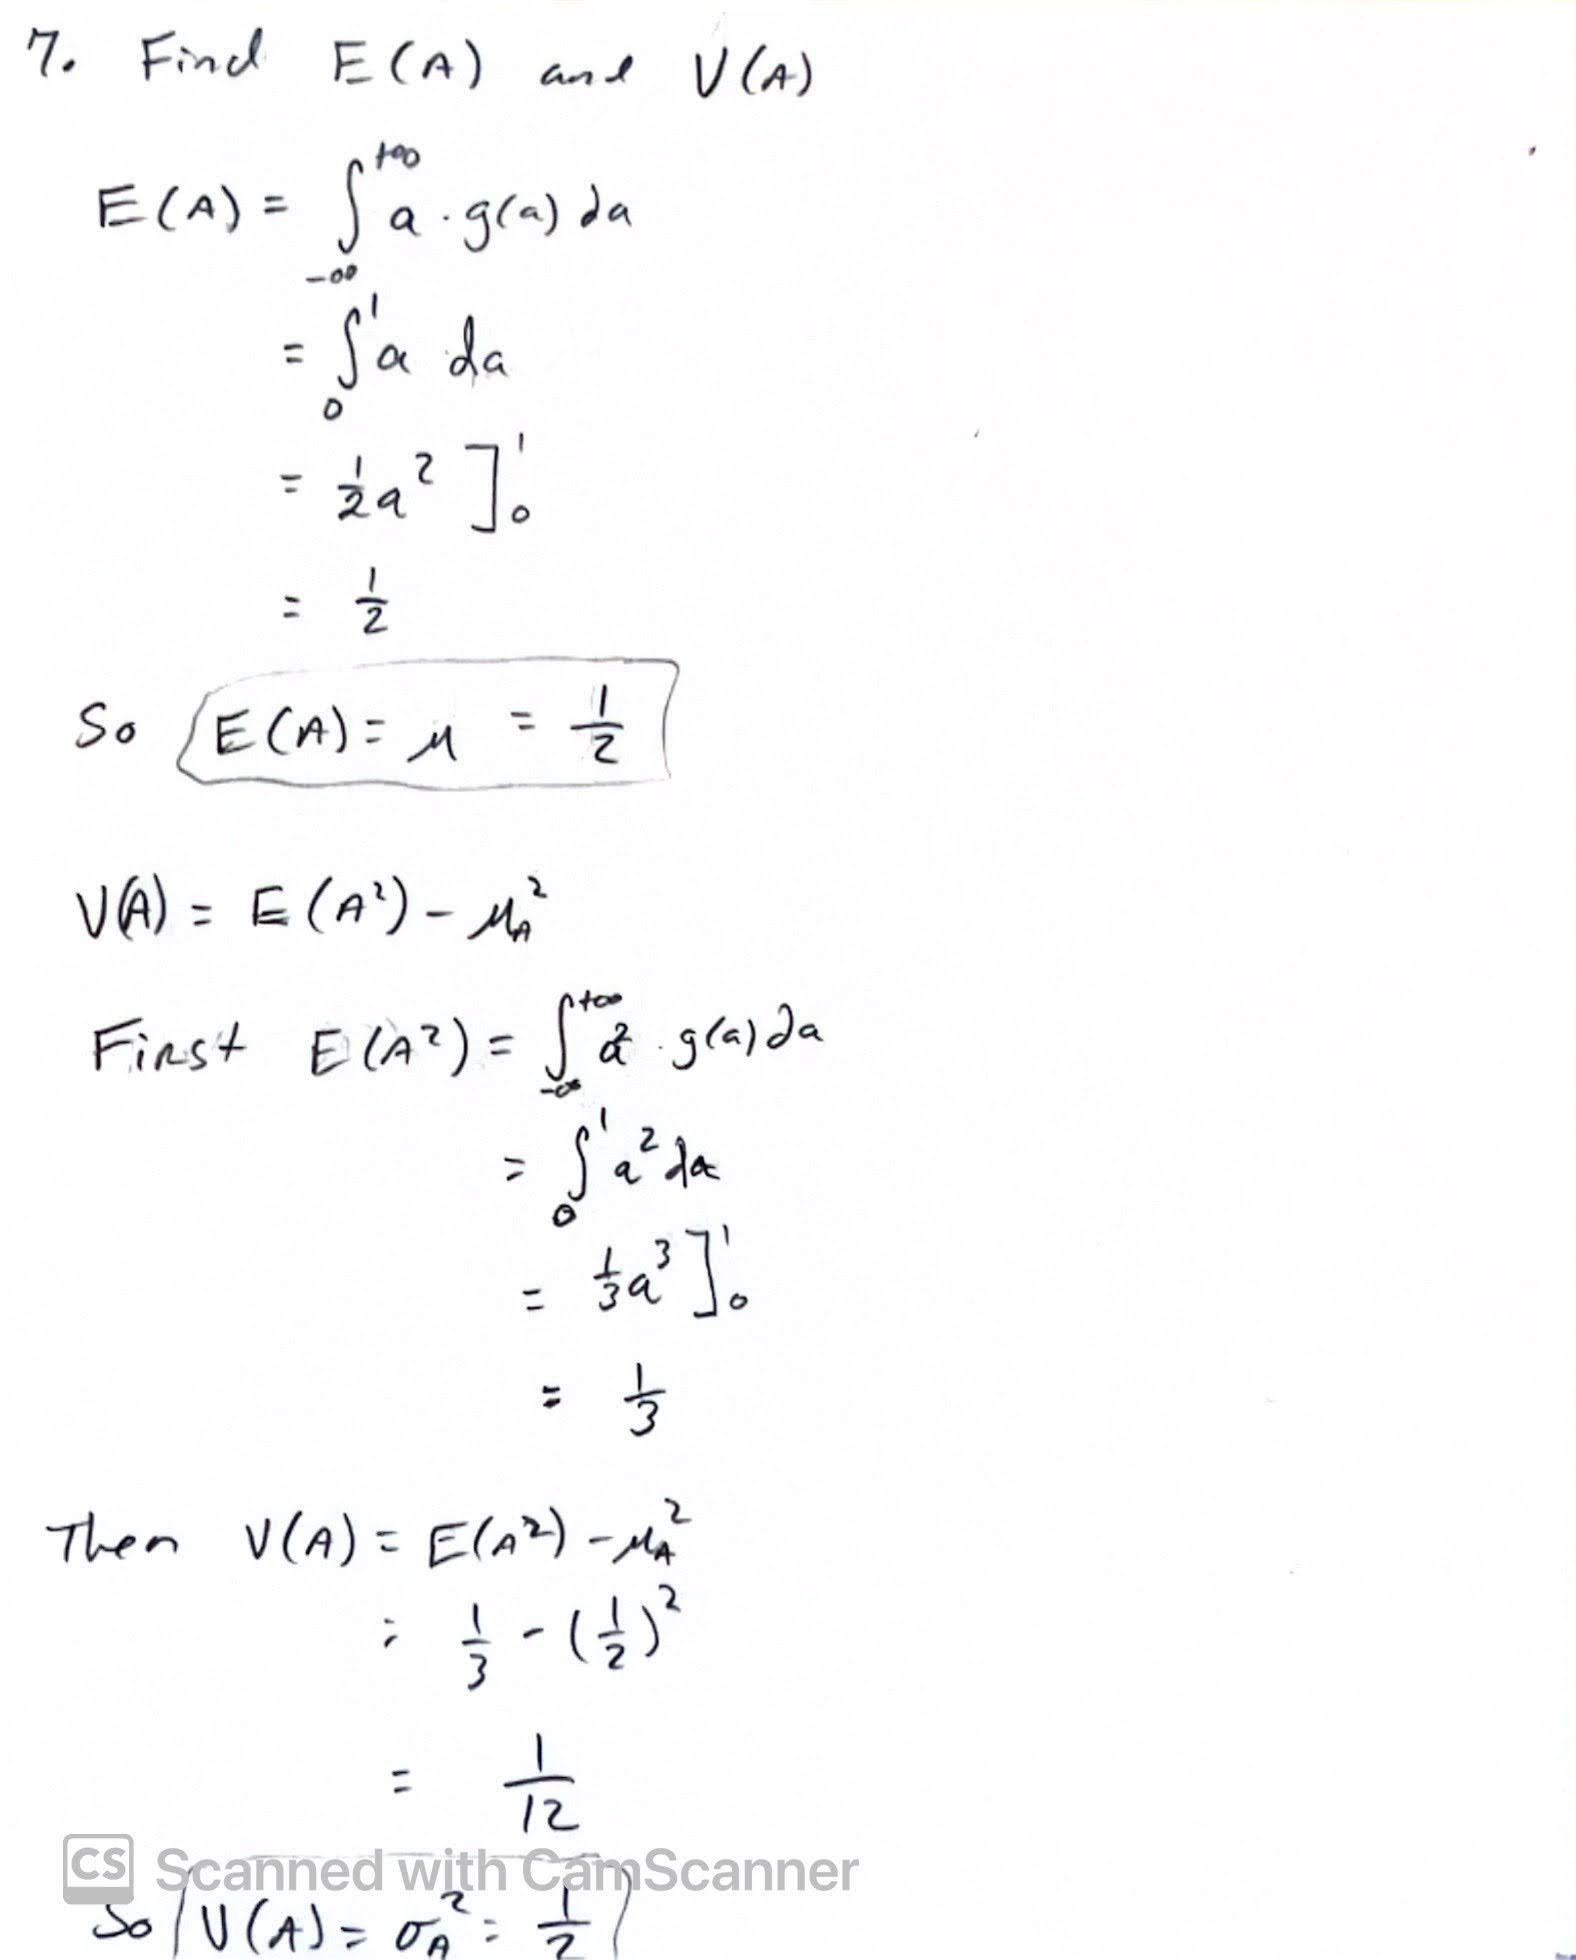 7. Find E(A) and V(A)
E(A) = ∫_{-∞}^{+∞} a · g(a) da
= ∫_0^1 a da
= 1/2 a² ]_0^1
= 1/2
So E(A) = μ = 1/2
V(A) = E(A²) - μ_A²
First E(A²) = ∫_{-∞}^{+∞} a² · g(a) da
= ∫_0^1 a² da
= 1/3 a³ ]_0^1
= 1/3
Then V(A) = E(A²) - μ_A²
= 1/3 - (1/2)²
= 1/12
CS Scanned with CamScanner
So V(A) = σ_A² = 1/2